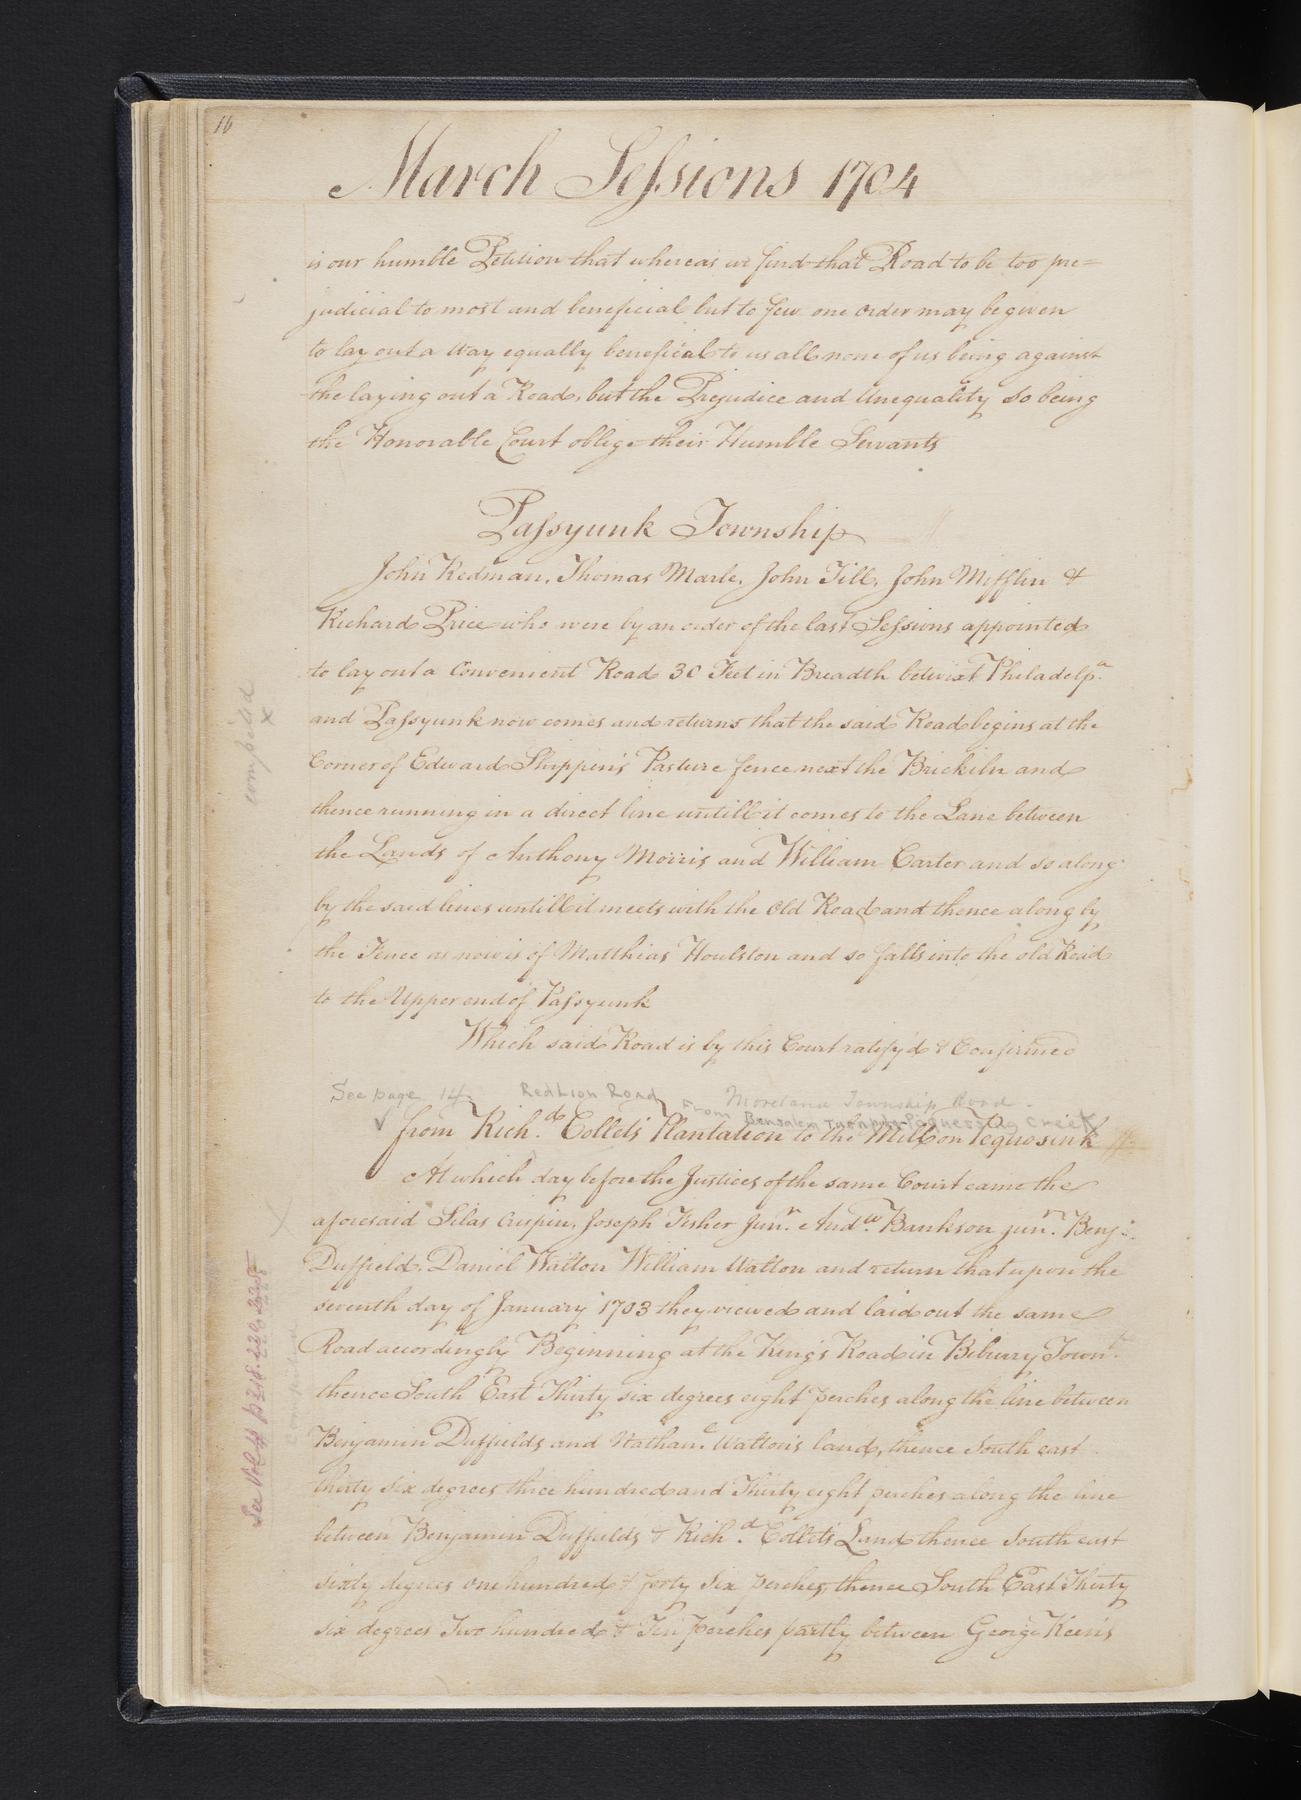 16
March Sessions 1704
is our humble Petition that whereas we find that Road to be too pre=
judicial to most and beneficial but to few one order may be given
to lay out a Way equally beneficial to us all none of us being against
the laying out a Road, but the Prejudice and Unequality so being
the Honorable Court oblige their Humble Servants
Passyunk Township
John Redman, Thomas Marle, John Till, John Mifflin &
Richard Price who were by an order of the last Sessions appointed
to lay out a Convenient Road 30 Feet in Breadth betwixt Philadelpa
and Passyunk now comes and returns that the said Road begins at the
Corner of Edward Shippen's Pasture fence next the Brickiln and
thence running in a direct line untill it comes to the Lane between
the Lands of Anthony Morris and William Carter and so along
by the said lines untill it meets with the Old Road and thence along by
the Fence as now is of Matthias Houlston and so falls into the old Road
to the Upper end of Passyunk
Which said Road is by this Court ratifyd & Confirmed
compiled
x
See page 14. Red Lion Road Moreland Township Road.
From Bensalem Turnpike Creek
✓ from Richd. Collets Plantation to the Mill on Pequosink
At which day before the Justices of the same Court came the
aforesaid Silas Crispin, Joseph Fisher Junr. Andw. Bankson junr. Benj:
Duffield, Daniel Walton William Walton and return that upon the
seventh day of January 1703 they viewed and laid out the same
Road accordingly Beginning at the King's Road in Biberry Town
thence South East Thirty six degrees eight perches along the line between
Benjamin Duffields and Nathanl. Walton's land, thence South east
thirty six degrees three hundred and Thirty eight perches along the line
between Benjamin Duffields & Richd. Collets Land thence South east
sixty degrees one hundred & forty six perches, thence South East Thirty
six degrees Two hundred & Ten perches partly between George Keen's
See Vol. p 218.220.